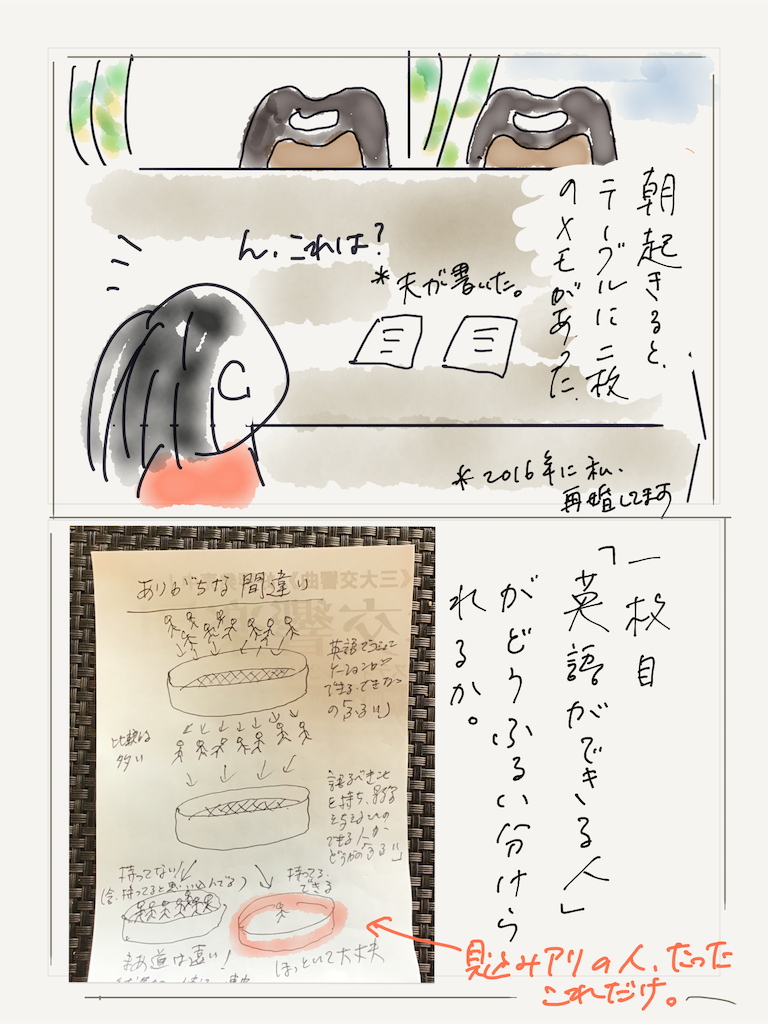 朝起きると、
テーブルに二枚
のメモがあった。
ん、これは?
*夫が書いた。
*2016年に私、
再婚してます
一枚目
「英語ができる人」
がどうふるい分けら
れるか。
ありがちな間違い
英語でコミュニ
ケーションが
できる・できない
の「ふるい」
比較的
多い
語るべきこと
を持ち、影響
を与えるものの
できる人か
どうかの「ふるい」
持ってない
(含、持ってると思い込んでる)
持ってる、
できる
まあ道は遠い!
ほっといて大丈夫
見込みアリの人、たった
これだけ。